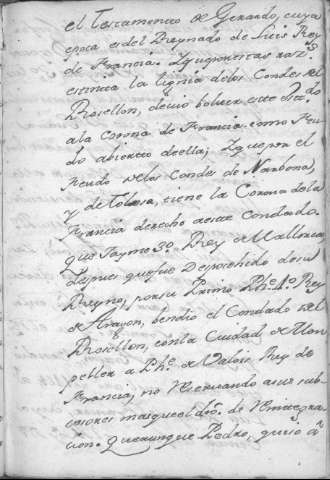 el Testamento de Gerardo, cuya
epoca es del Reynado de Luis Rey
de Francia. Y supuesta
extincta la lignia de los Condes de
Rosellon, devio bolver este
a la Corona de Francia como feu
do abierto de ella; Y que por el
feudo de los Condes de Narbona,
y de Tolosa, tiene la Corona de la
Francia derecho a este Condado.
que Jayme 3º Rey de Mallorca
despues que fue desposehido de su
Reyno, por su Primo Phe. 4º Rey
de Aragon, bendio el Condado del
Rosellon, con la Ciudad de Mon
peller a Phe. de Valois Rey de
Francia, no reservando a sus sub
cesores mas que el dro. de
cion. Que aunque Pedro, quiso